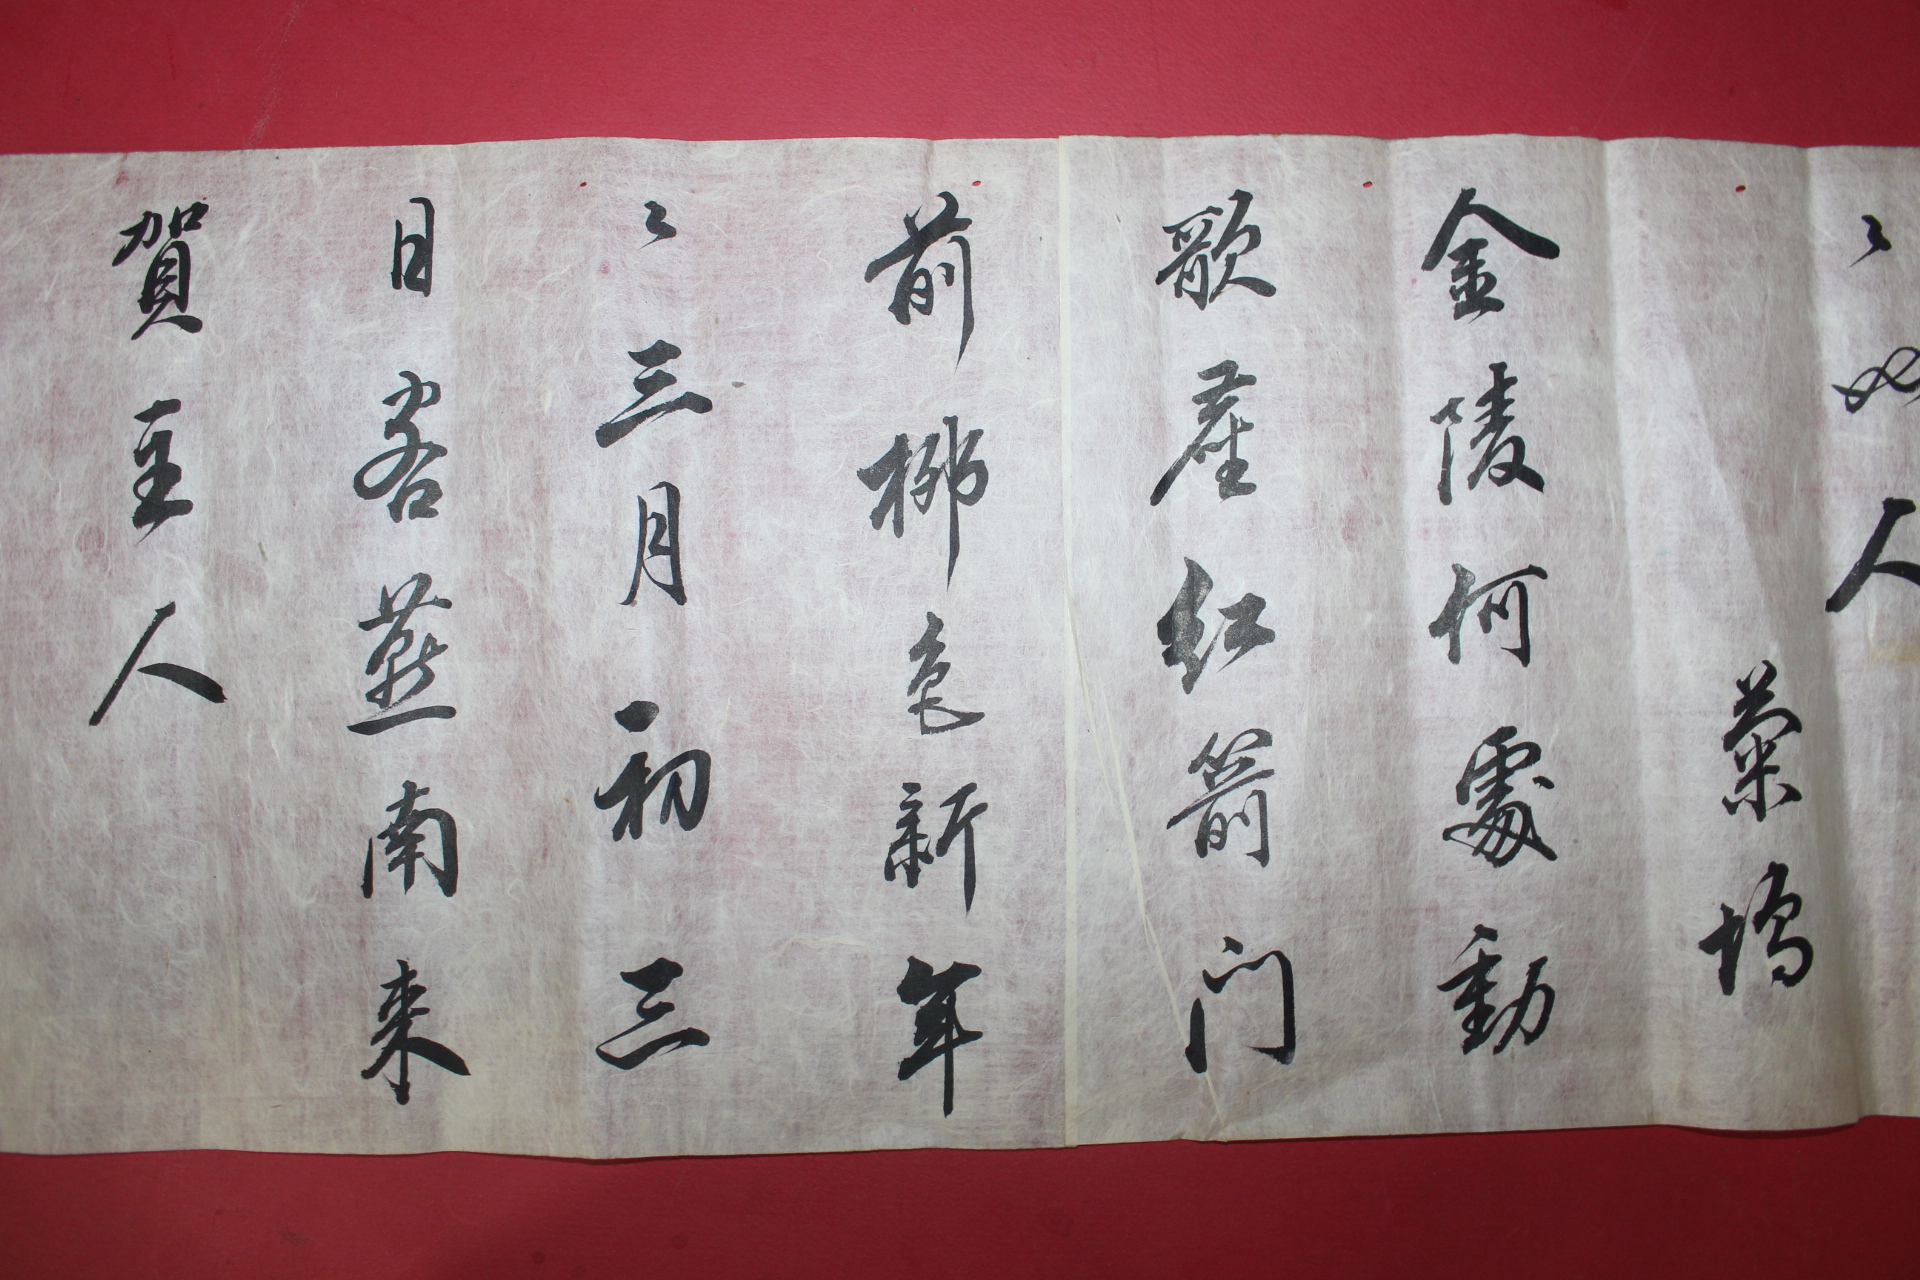 〻如人
菊塢
金陵何處動
歌屋红箭门
前柳色新年
〻三月初三
日客燕南来
賀主人